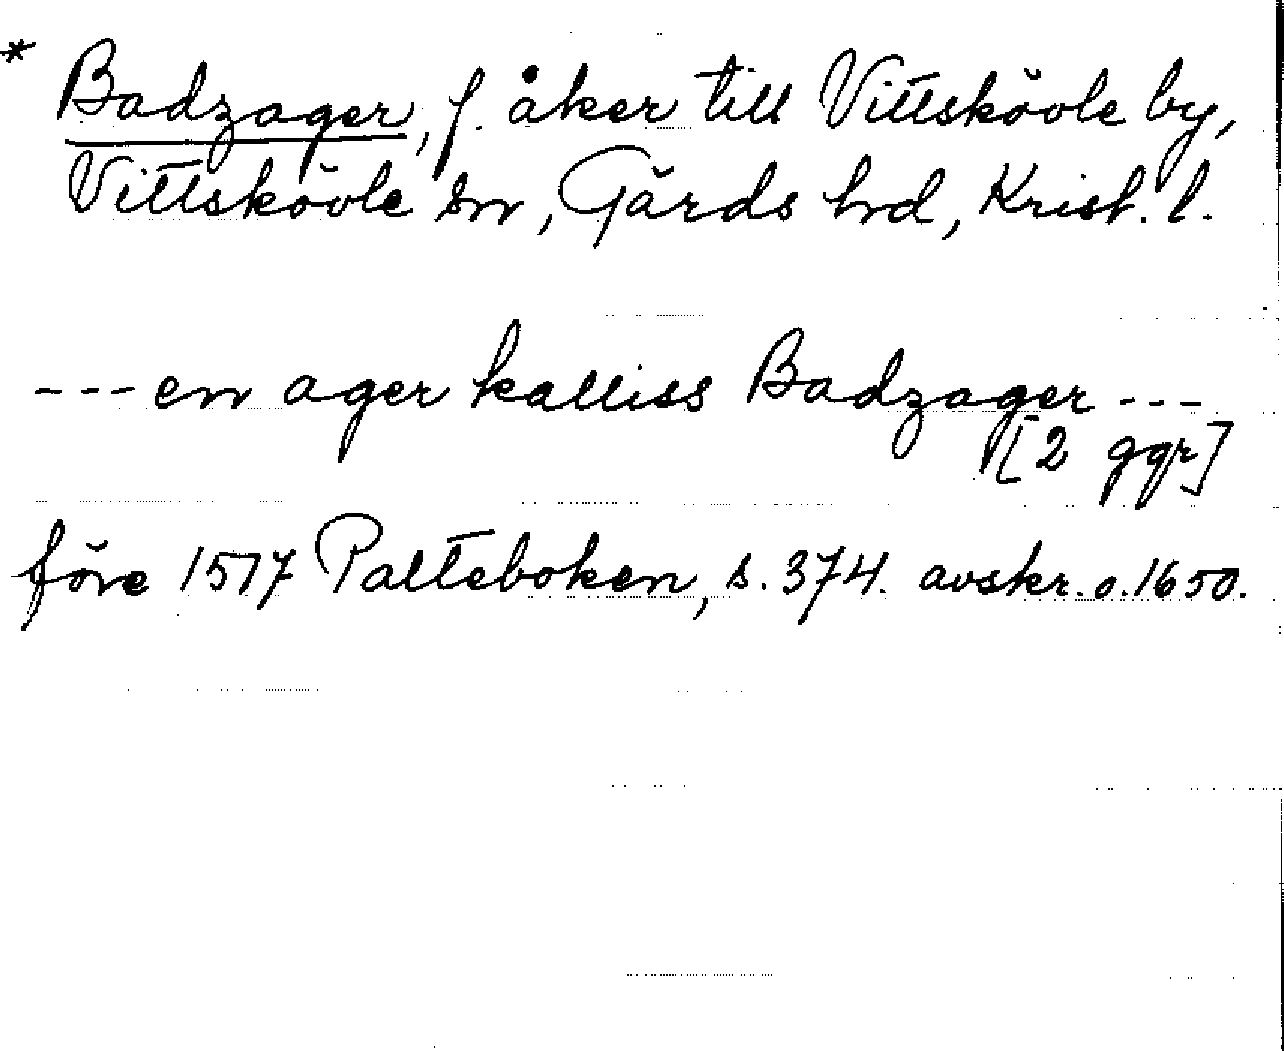 * Badzager, f. åker till Vittskövle by,
Vittskövle sn, Gärds hrd, Krist. l.
--- en ager kalliss Badzager ---
[2 ggr]
före 1517 Palteboken, s. 374. avskr. o. 1650.